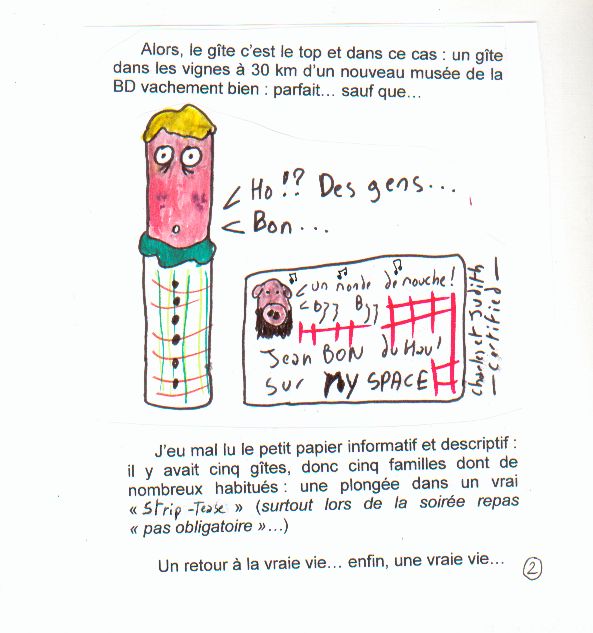 Alors, le gîte c'est le top et dans ce cas : un gîte
dans les vignes à 30 km d'un nouveau musée de la
BD vachement bien : parfait... sauf que...
Ho !? Des gens...
Bon...
un monde de mouche !
Bzz Bzz
Jean BON du Hau !
sur MY SPACE
Charles et Judith
— certified —
J'eu mal lu le petit papier informatif et descriptif :
il y avait cinq gîtes, donc cinq familles dont de
nombreux habitués : une plongée dans un vrai
« Strip-Tease » (surtout lors de la soirée repas
« pas obligatoire »...)
Un retour à la vraie vie... enfin, une vraie vie...
2